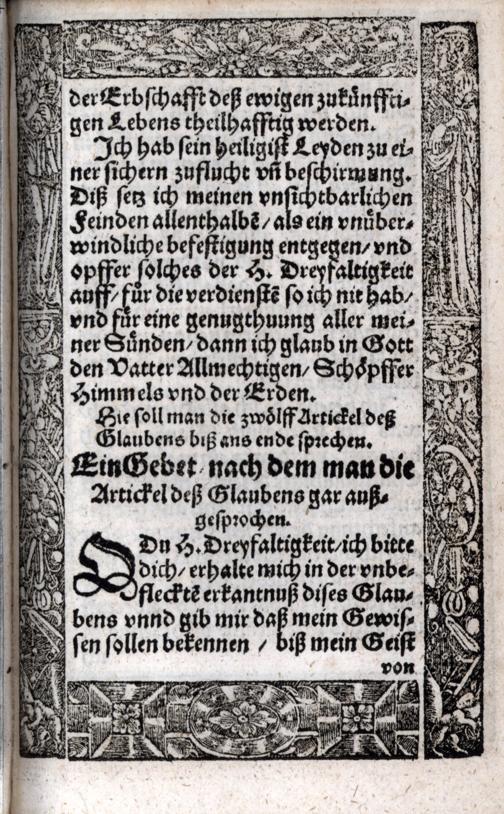 der Erbschafft deß ewigen zukünffti⸗
gen Lebens theilhafftig werden.
Jch hab sein heiligist Leyden zu ei⸗
ner sichern zuflucht vñ beschirmung.
Diß setz ich meinen vnsichtbarlichen
Feinden allenthalbẽ / als ein vnüber⸗
windliche befestigung entgegen / vnd
opffer solches der H. Dreyfaltigkeit
auff / für die verdienstẽ so ich nit hab /
vnd für eine genugthuung aller mei⸗
ner Sünden / dann ich glaub in Gott
den Vatter Allmechtigen / Schöpffer
Himmels vnd der Erden.
Hie soll man die zwölff Artickel deß
Glaubens biß ans ende sprechen.
Ein Gebet / nach dem man die
Artickel deß Glaubens gar auß⸗
gesprochen.
O Du H. Dreyfaltigkeit / ich bitte
dich / erhalte mich in der vnbe⸗
flecktẽ erkantnuß dises Glau⸗
bens vnnd gib mir daß mein Gewis⸗
sen sollen bekennen / biß mein Geist
von